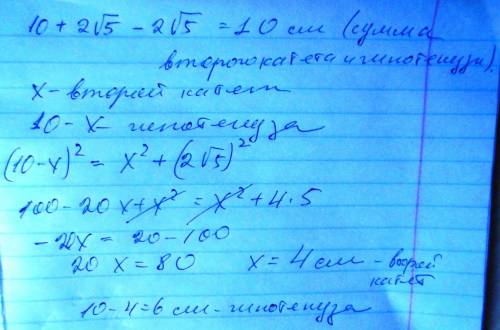 10 + 2√5 - 2√5 = 10 см (сумма
второго катета и гипотенузы).
x - второй катет
10 - x - гипотенуза
(10-x)² = x² + (2√5)²
100 - 20x + x² = x² + 4·5
- 20x = 20 - 100
20x = 80 x = 4 см - второй
катет
10-4=6 см - гипотенуза